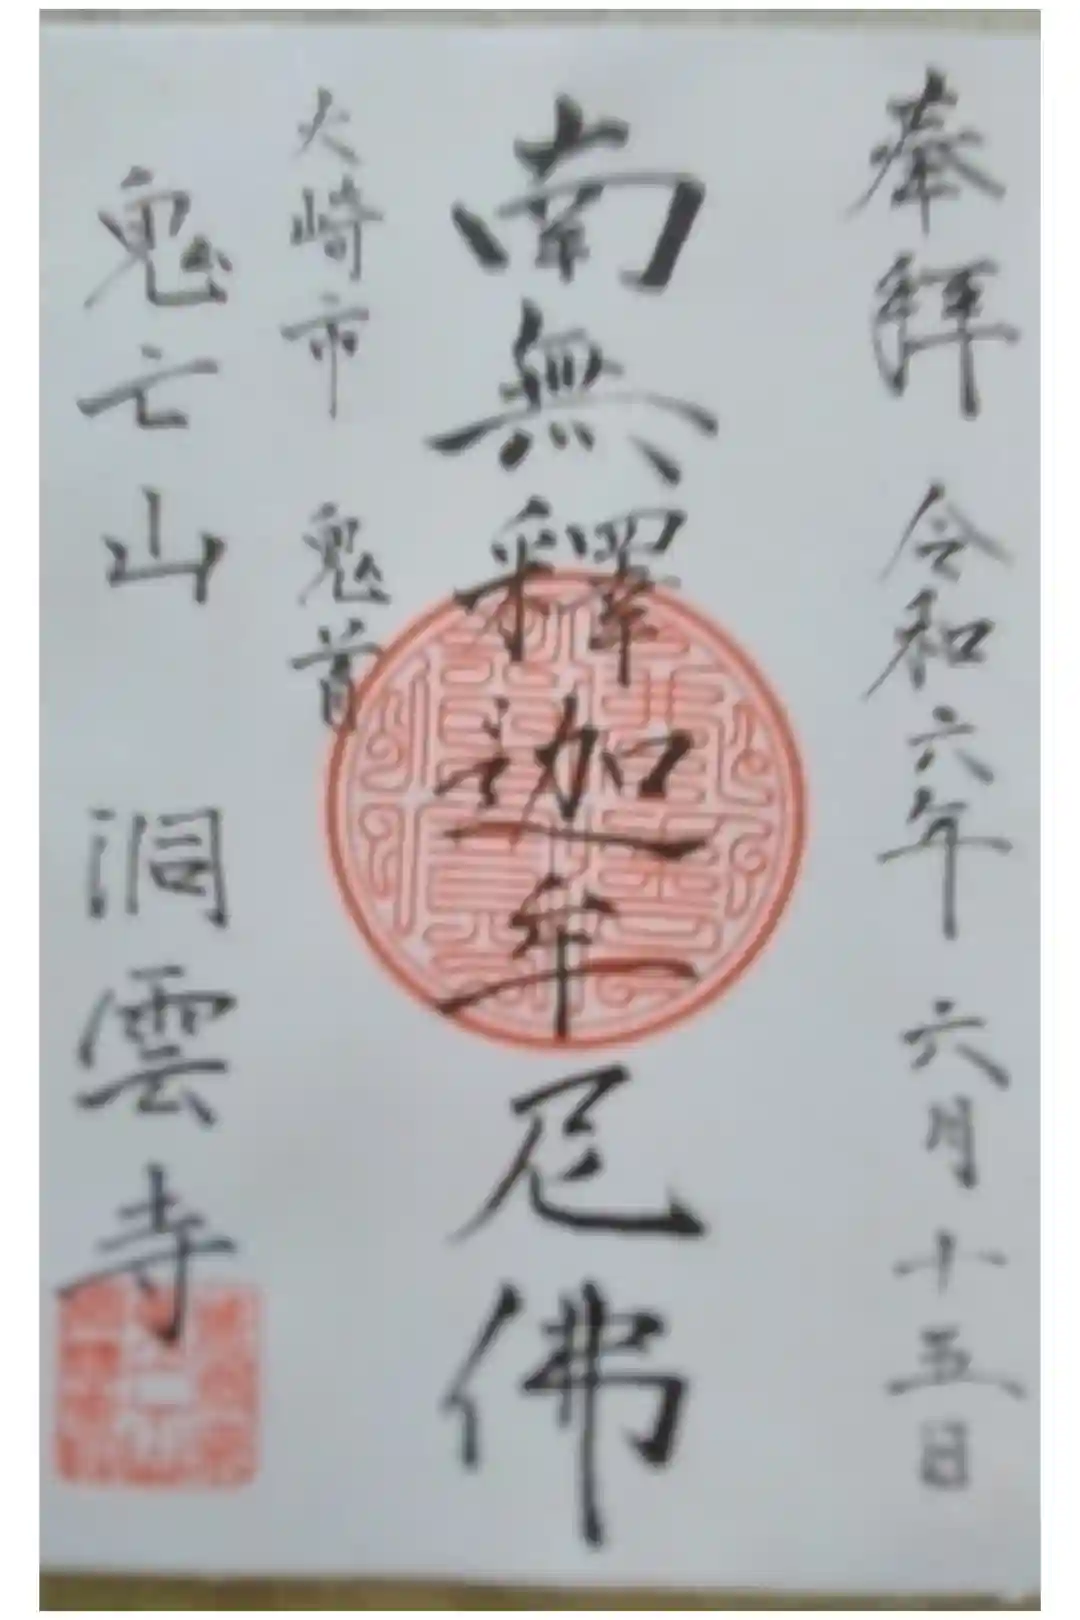 奉拜 令和六年 六月十五日
南無釋迦牟尼佛
大崎市 鬼首
鬼亡山 洞雲寺